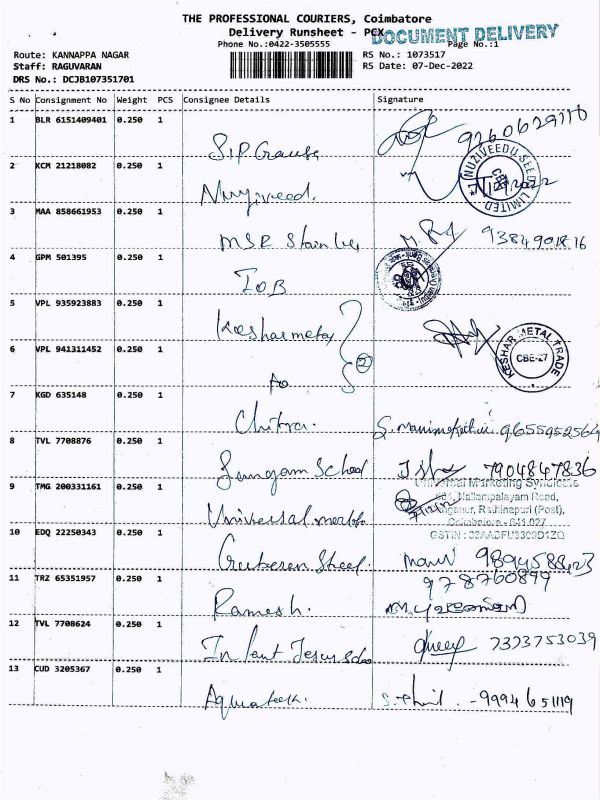 THE PROFESSIONAL COURIERS, Coimbatore
Delivery Runsheet - PCX
DOCUMENT DELIVERY
Phone No.:0422-3505555
Page No.:1
Route: KANNAPPA NAGAR
RS No.: 1073517
Staff: RAGUVARAN
RS Date: 07-Dec-2022
DRS No.: DCJB107351701
S No Consignment No Weight PCS Consignee Details Signature
1 BLR 6151409401 0.250 1
2 KCM 21218082 0.250 1
NUZIVEEDU SEEDS LIMITED
CBE
3 MAA 858661953 0.250 1
MSR 9384901816
4 GPM 501395 0.250 1
IOB
5 VPL 935923883 0.250 1
KESHAR METAL TRADE
CBE-27
6 VPL 941311452 0.250 1
2
7 KGD 635148 0.250 1
Chitra. 9655952564
8 TVL 7708876 0.250 1
Sangam School 7904847836
9 TMG 200331161 0.250 1
Universal Marketing Syndicate
Nallampalayam Road,
Rathinapuri (Post),
Coimbatore - 641 027
Universal
10 EDQ 22250343 0.250 1
Steel.
11 TRZ 65351957 0.250 1
978760899
Ramesh.
12 TVL 7708624 0.250 1
Infant Jesus 7373753039
13 CUD 3205367 0.250 1
Aquateek. - 9994651119